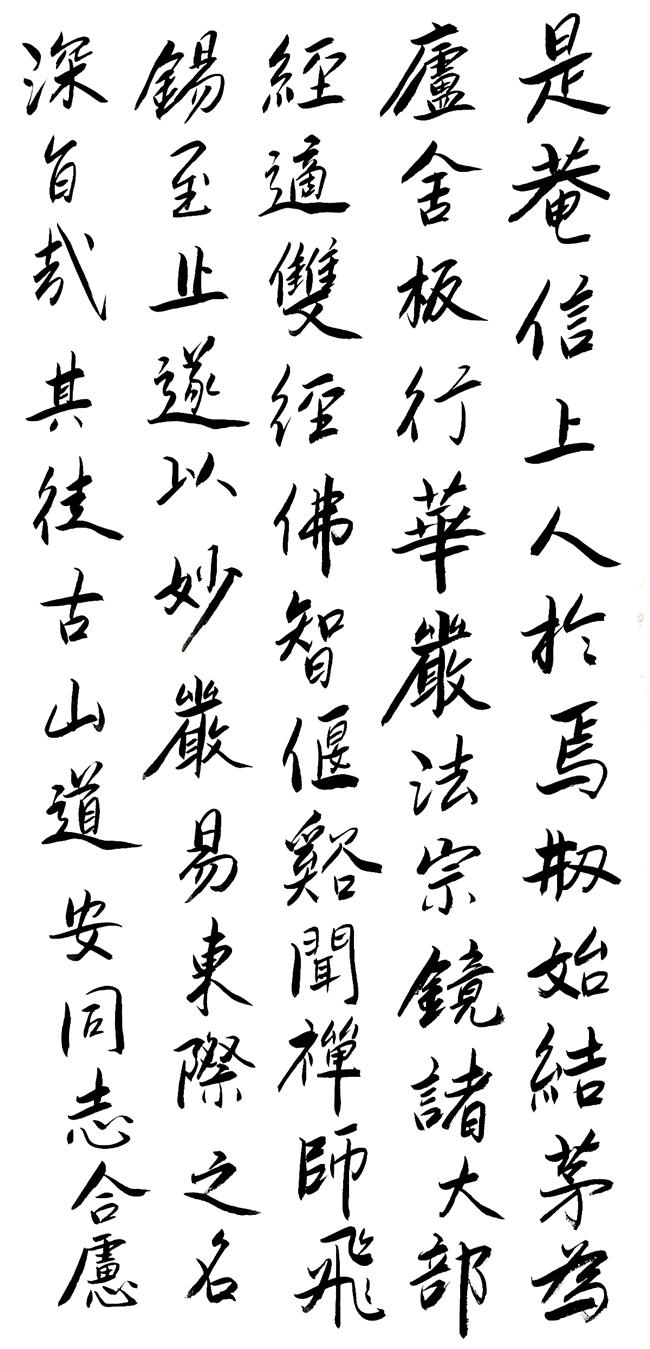 是菴信上人於焉刱始結茅為
廬舍板行華嚴法宗鏡諸大部
經適雙徑佛智偃谿聞禪師飛
錫至止遂以妙嚴易東際之名
深旨哉其徒古山道安同志合慮